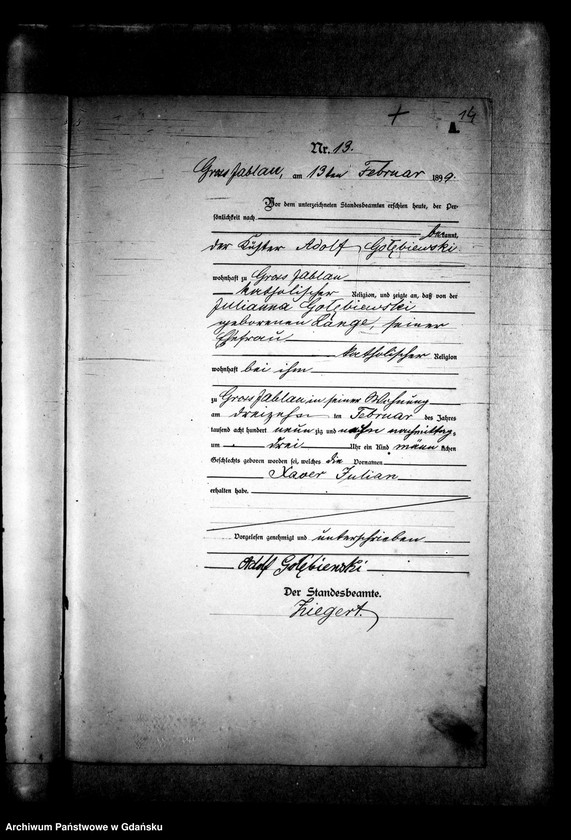 14
A.
Nr. 13.
Gross Jablau, am 13ten Februar 1899.
Vor dem unterzeichneten Standesbeamten erschien heute, der Per-
sönlichkeit nach
bekannt,
der Küster Adolf Gołębiewski
wohnhaft zu Gross Jablau
katholischer Religion, und zeigte an, daß von der
Julianna Gołębiewski
geborenen Lange, seiner
Ehefrau
katholischer Religion
wohnhaft bei ihm
zu Gross Jablau in seiner Wohnung
am dreizehn ten Februar des Jahres
tausend acht hundert neun zig und neun nachmittags
um drei Uhr ein Kind männ lichen
Geschlechts geboren worden sei, welches die Vornamen
Xaver Julian
erhalten habe.
Vorgelesen genehmigt und unterschrieben
Adolf Gołębiewski
Der Standesbeamte.
Ziegert.
Archiwum Państwowe w Gdańsku